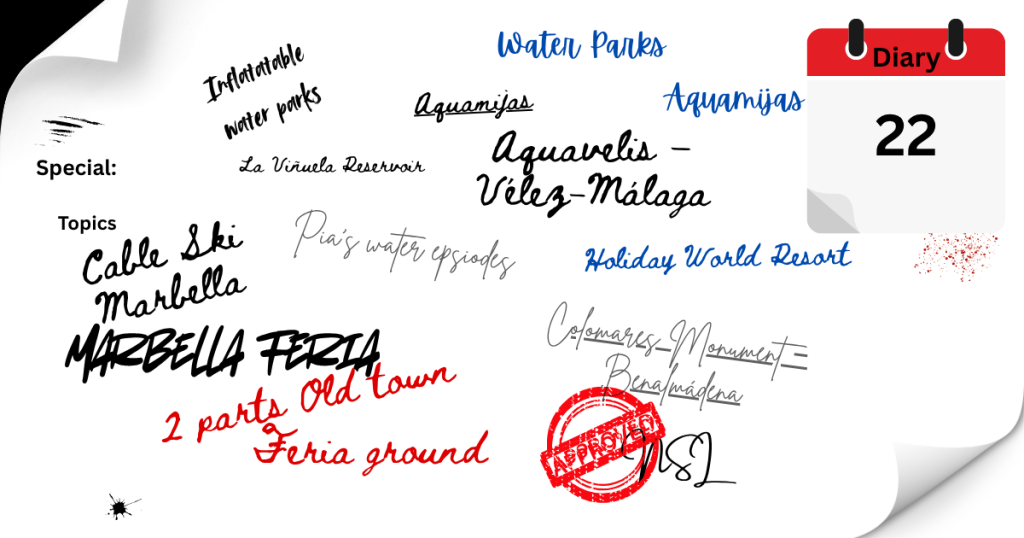 Inflatatable
water parks
Water Parks
Diary
22
Aquamijas
Aquamijas
Special:
La Viñuela Reservoir
Aquavelis –
Vélez-Málaga
Topics
Cable Ski
Marbella
Pia's water epsiodes
Holiday World Resort
MARBELLA FERIA
2 parts Old town
Feria ground
Colomares Monument –
Benalmádena
APPROVED
NSL